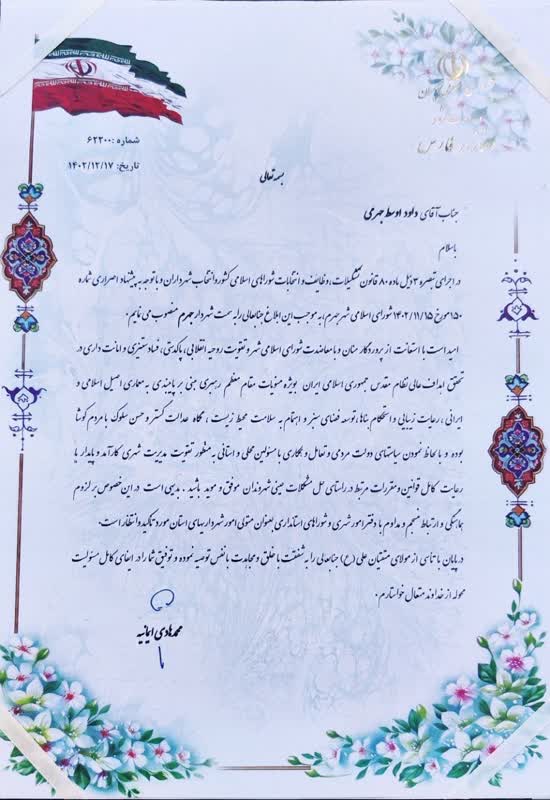 شماره: ۶۲۳۰۰
تاریخ: ۱۴۰۲/۱۲/۱۷
فارس
بسمه تعالی
جناب آقای داود اوسط جهرمی
باسلام
در اجرای تبصره ۳ ذیل ماده ۸۰ قانون تشکیلات، وظایف و انتخابات شوراهای اسلامی کشور و انتخاب شهرداران و با توجه به پیشنهاد اصراری شماره
۱۵۰ مورخ ۱۴۰۲/۱۱/۱۵ شورای اسلامی شهر جهرم، به موجب این ابلاغ جنابعالی را به سمت شهردار جهرم منصوب می نایم.
امید است با استعانت از پروردگار منان و با معاضدت شورای اسلامی شهر و تقویت روحیه انقلابی، پاکدستی، فساد ستیزی و امانت داری در
تحقق اهداف عالی نظام مقدس جمهوری اسلامی ایران بویژه منویات مقام معظم رهبری مبنی بر پایبندی به معماری اصیل اسلامی و
ایرانی، رعایت زیبایی و استحکام بناها، توسعه فضای سبز و اهتمام به سلامت محیط زیست، نگاه عدالت گستر و حسن سلوک با مردم کوشا
بوده و با لحاظ نمودن سیاستهای دولت مردمی و تعامل و همکاری با مسئولین محلی و استانی به منظور تقویت مدیریت شهری کارآمد و پایدار با
رعایت کامل قوانین و مقررات مرتبط در راستای حل مشکلات عینی شهروندان موفق و موید باشید. بدیهی است در این خصوص بر لزوم
هماهنگی و ارتباط منسجم و مداوم با دفتر امور شهری و شوراهای استانداری بعنوان متولی امور شهرداریهای استان مورد تاکید و انتظار است.
در پایان با تاسی از مولای متقیان علی (ع) جنابعالی را به شفقت با خلق و مجاهدت با نفس توصیه نموده و توفیق شما را در ایفای کامل مسئولیت
محوله از خداوند متعال خواستارم.
محمدهادی ایمانیه